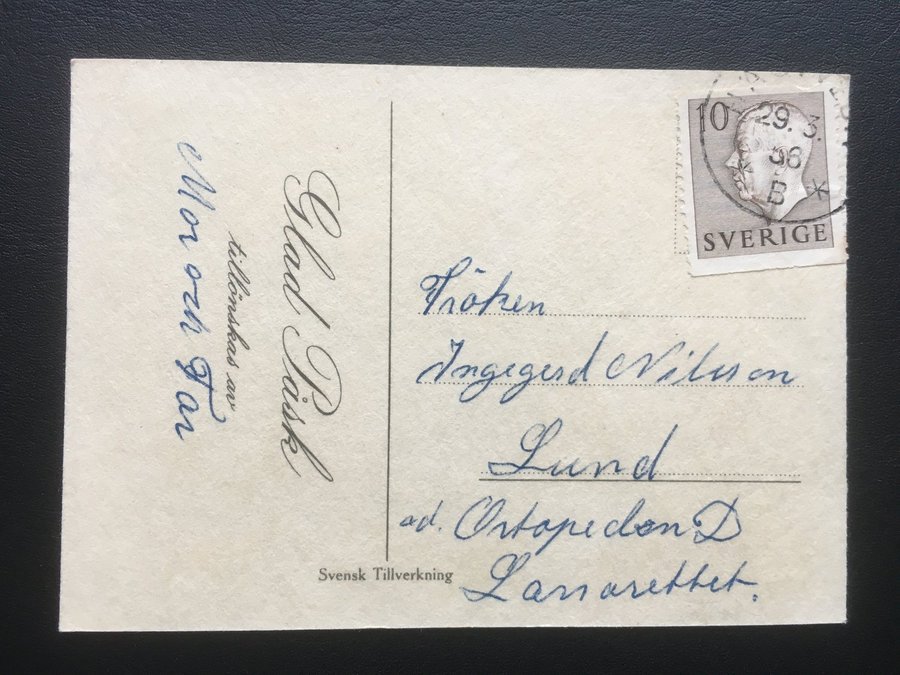 Glad Påsk
tillönskas av
Mor och Far
Svensk Tillverkning
10
29.3.56
B
SVERIGE
Fröken
Ingegerd Nilsson
Lund
ad. Ortopeden D
Lasarettet.